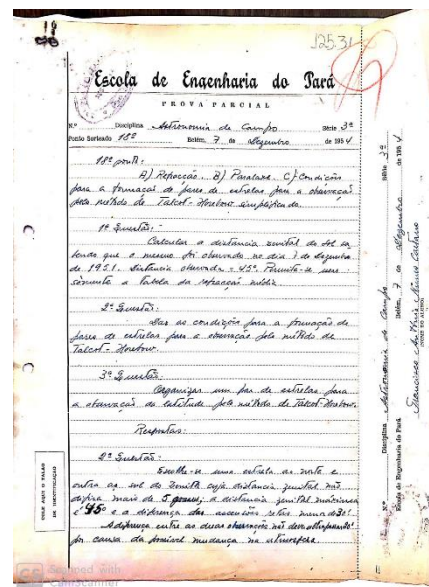 12531
Escola de Engenharia do Pará
PROVA PARCIAL
N.º Disciplina Astronomia de Campo Série 3ª
Ponto Sorteado 18º Belém, 7 de dezembro de 1954
18º ponto:
A) Refracção. B) Paralaxe. C) Condições
para a formação de pares de estrelas para a observação
pelo método de Talcot-Horebow simplificado.
1ª Questão:
Calcular a distancia zenital do sol sa-
bendo que o mesmo foi observado no dia 7 de dezembro
de 1951. Distancia observada = 45º. Permite-se
sòmente a Tabela da refracção média.
2ª Questão:
Dar as condições para a formação de
pares de estrelas para a observação pelo método de
Talcot-Horebow.
3ª Questão:
Organizar um par de estrelas para
a observação da latitude pelo método de Talcot-Horebow.
Respostas:
2ª Questão:
Escolhe-se uma estrela ao norte e
outra ao sul do zenith cuja distancia zenital não
difira mais de 5 graus; a distancia zenital máxima
é 45º e a diferença das ascensões retas menor de
A diferença entre as duas observações não deve ultrapassar
por causa da possivel mudança na atmosfera
COLE AQUI O TALÃO
DE IDENTIFICAÇÃO
Série 3ª
Belém, 7 de dezembro de 1954
Disciplina Astronomia de Campo
Escola de Engenharia do Pará
N.º
Francisco Nunes
NOME DO ALUNO
CS Scanned with
CamScanner